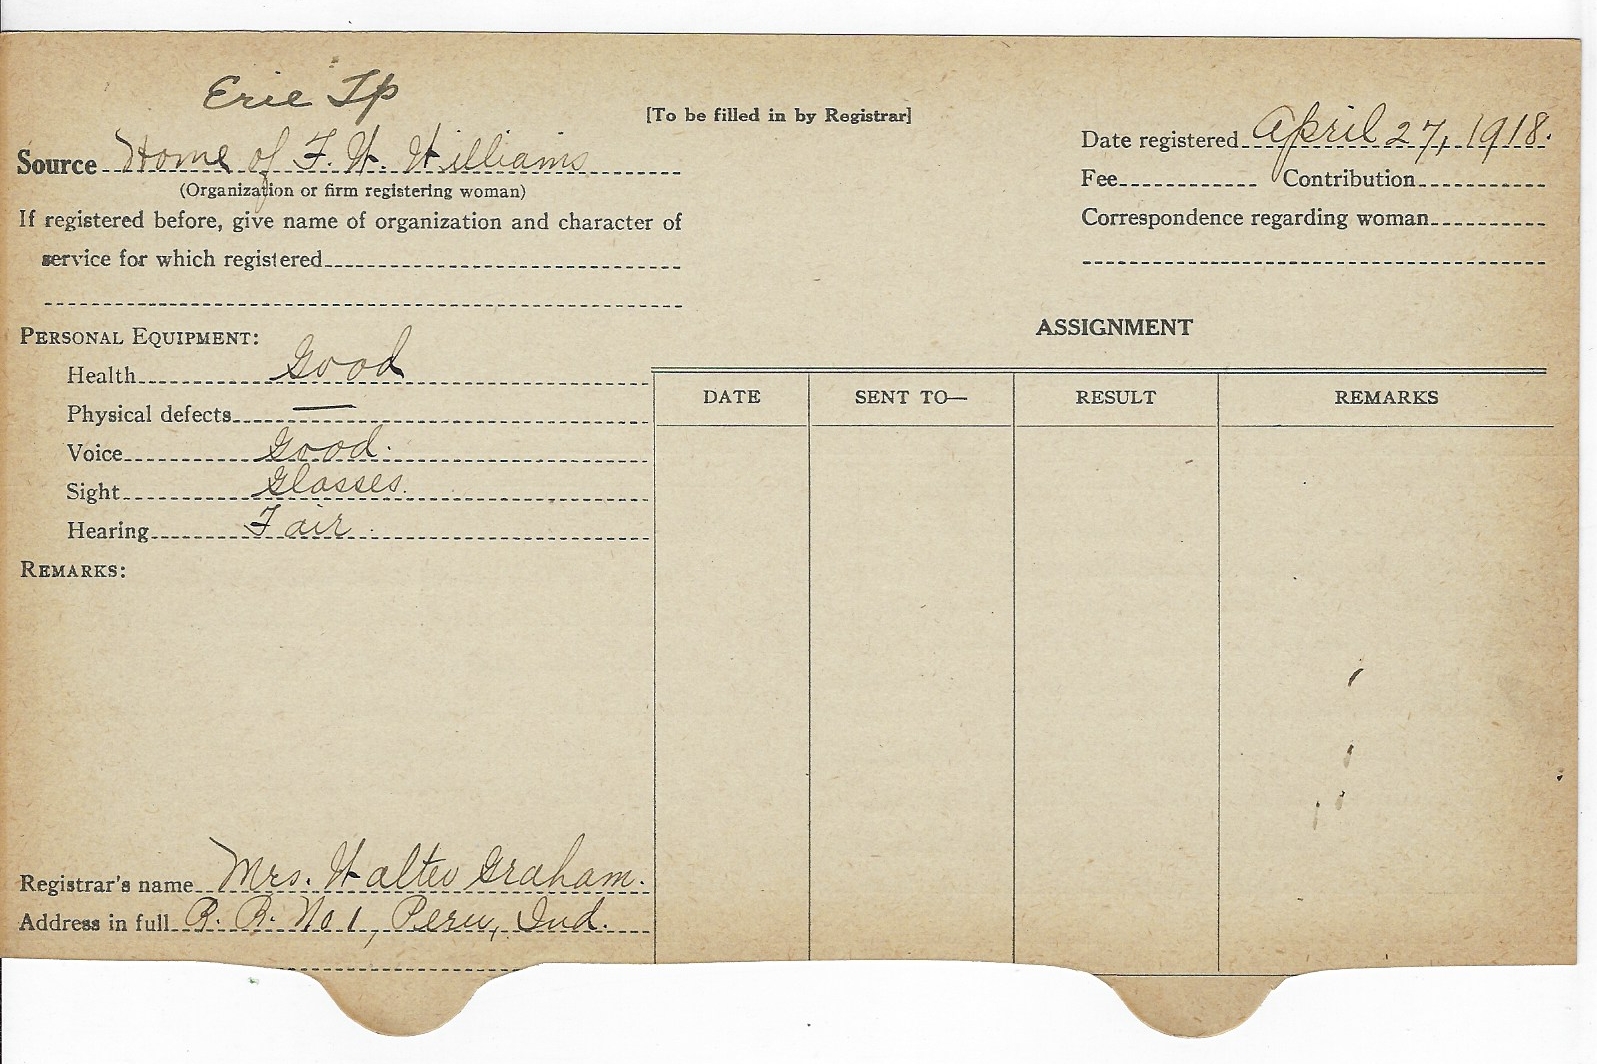 Erie Tp
[To be filled in by Registrar]
Source Home of F. W. Williams
(Organization or firm registering woman)
If registered before, give name of organization and character of
service for which registered
Date registered April 27, 1918.
Fee Contribution
Correspondence regarding woman
PERSONAL EQUIPMENT:
Health Good
Physical defects —
Voice Good.
Sight Glasses.
Hearing Fair.
REMARKS:
ASSIGNMENT
DATE SENT TO— RESULT REMARKS
Registrar's name Mrs. Walter Graham.
Address in full R. R. No 1, Peru, Ind.